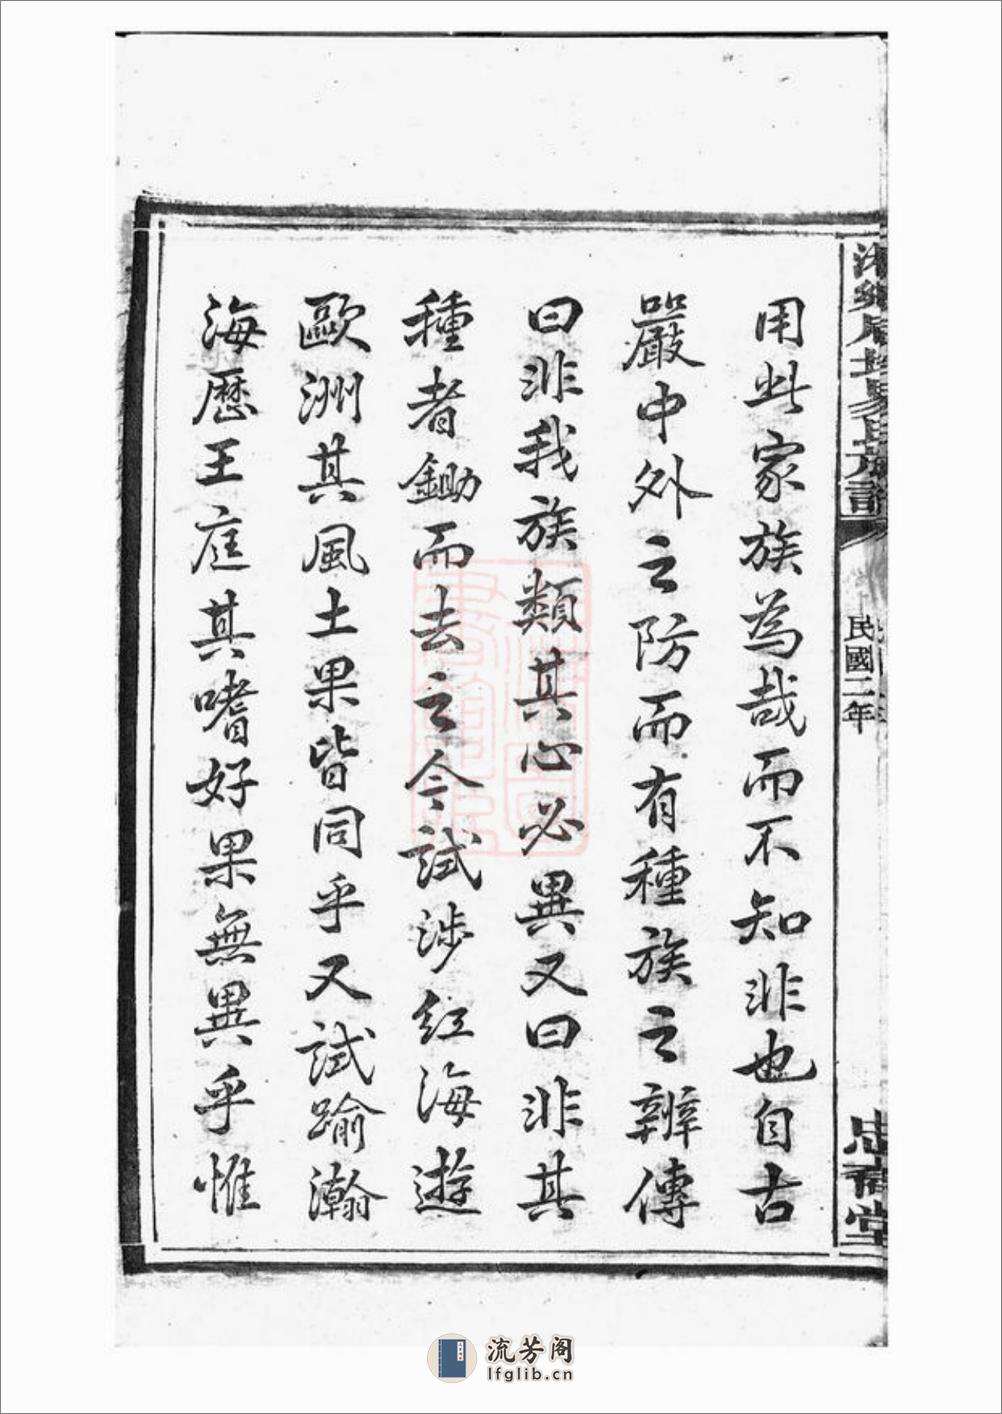 用此家族為哉而不知非也自古
嚴中外之防而有種族之辨傳
曰非我族類其心必異又曰非其
種者鋤而去之今試涉紅海遊
歐洲其風土果皆同乎又試踰瀚
海歷王庭其嗜好果無異乎惟
易氏族譜
民國二年
堂
流芳阁
lfglib.cn